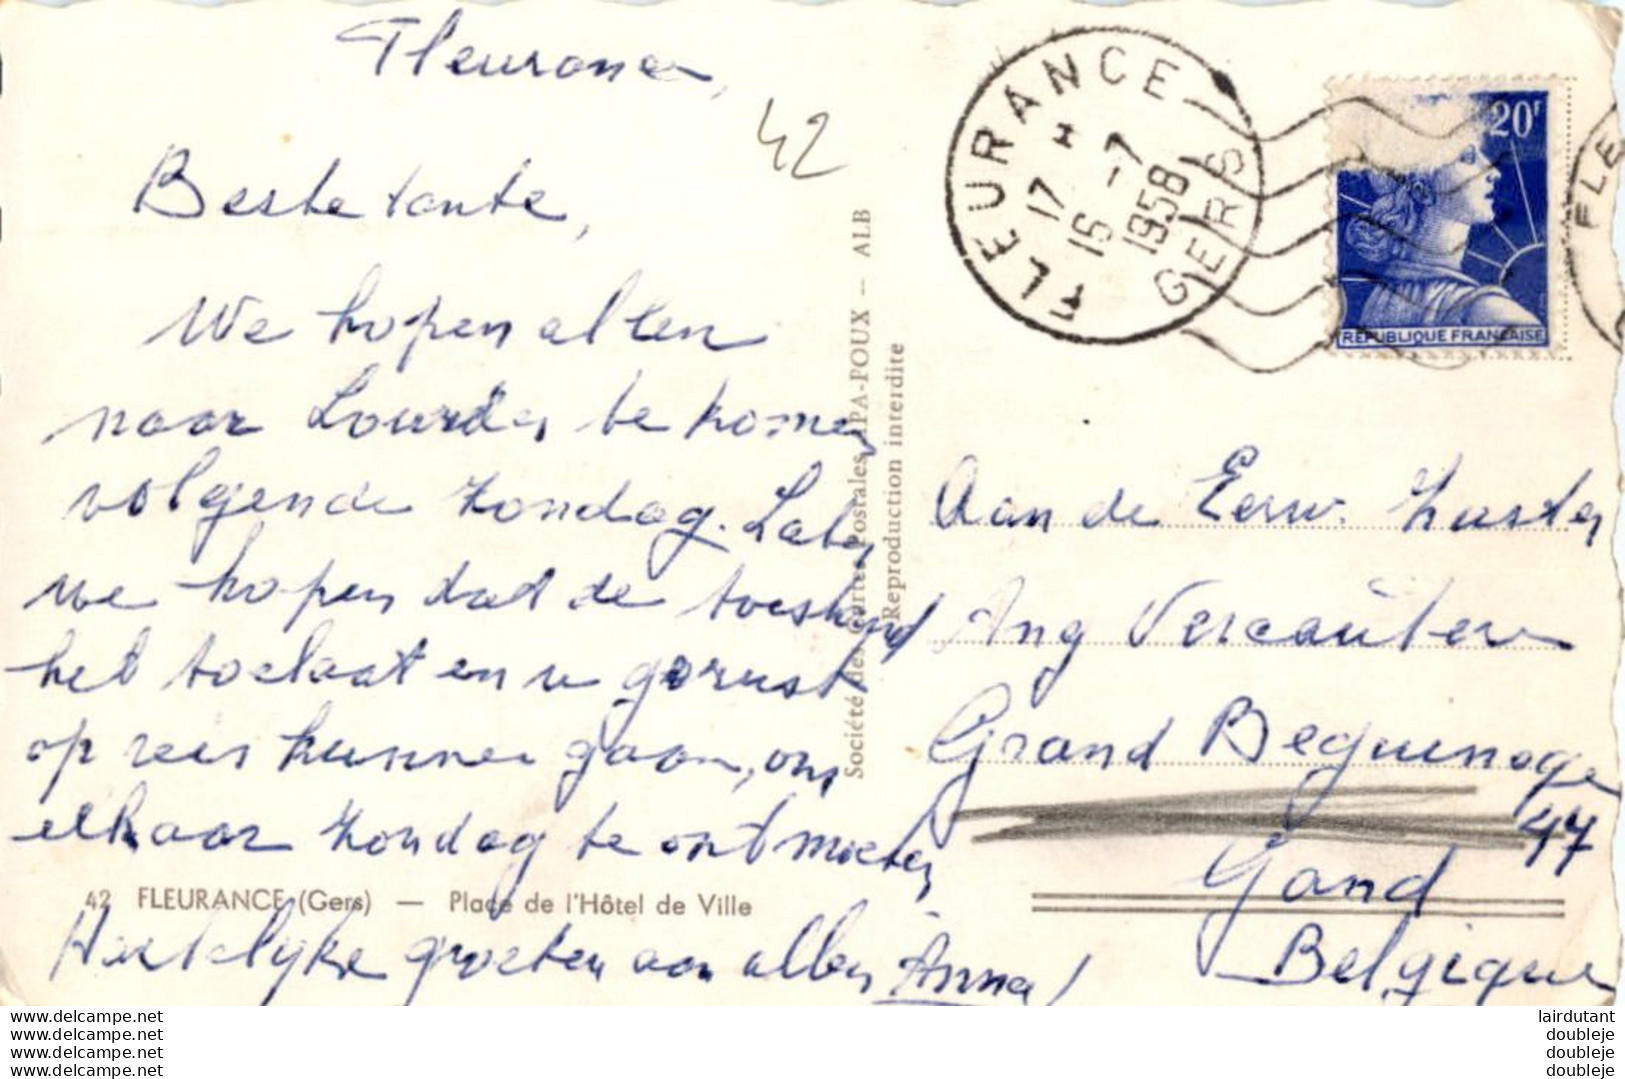 Fleurance,
42
Beste tante,
We hopen allen
naar Lourdes te komen
volgende zondag. Laten
we hopen dat de toestand
het toelaat en u gerust
op reis kunnen gaan, om
elkaar zondag te ontmoeten
42 FLEURANCE (Gers) — Place de l'Hôtel de Ville
Hartelijke groeten aan allen Anna
Société des Cartes Postales APA-POUX — ALB
Reproduction interdite
FLEURANCE
17 H
16 -7
1958
GERS
20F
REPUBLIQUE FRANÇAISE
FLE
Aan de Eerw. Zuster
Ang Vercauteren
Grand Beguinage
47
Gand
Belgique
www.delcampe.net
www.delcampe.net
www.delcampe.net
www.delcampe.net
lairdutant
doubleje
doubleje
doubleje